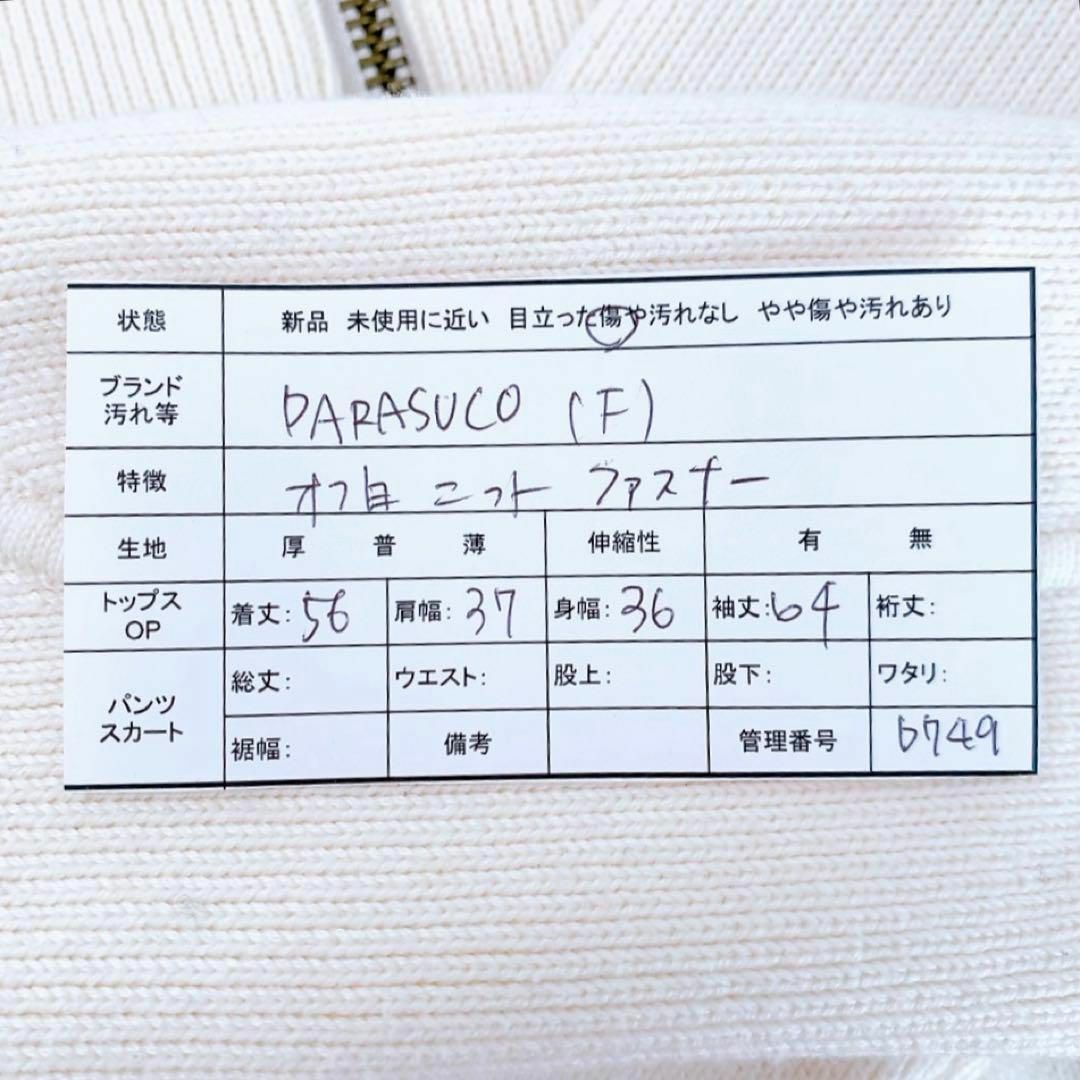 状態 新品 未使用に近い 目立った傷や汚れなし やや傷や汚れあり
ブランド
汚れ等 PARASUCO (F)
特徴 オフ白 ニット ファスナー
生地 厚 普 薄 伸縮性 有 無
トップス
OP 着丈: 56 肩幅: 37 身幅: 36 袖丈: 64 裄丈:
パンツ
スカート 総丈: ウエスト: 股上: 股下: ワタリ:
裾幅: 備考 管理番号 6749